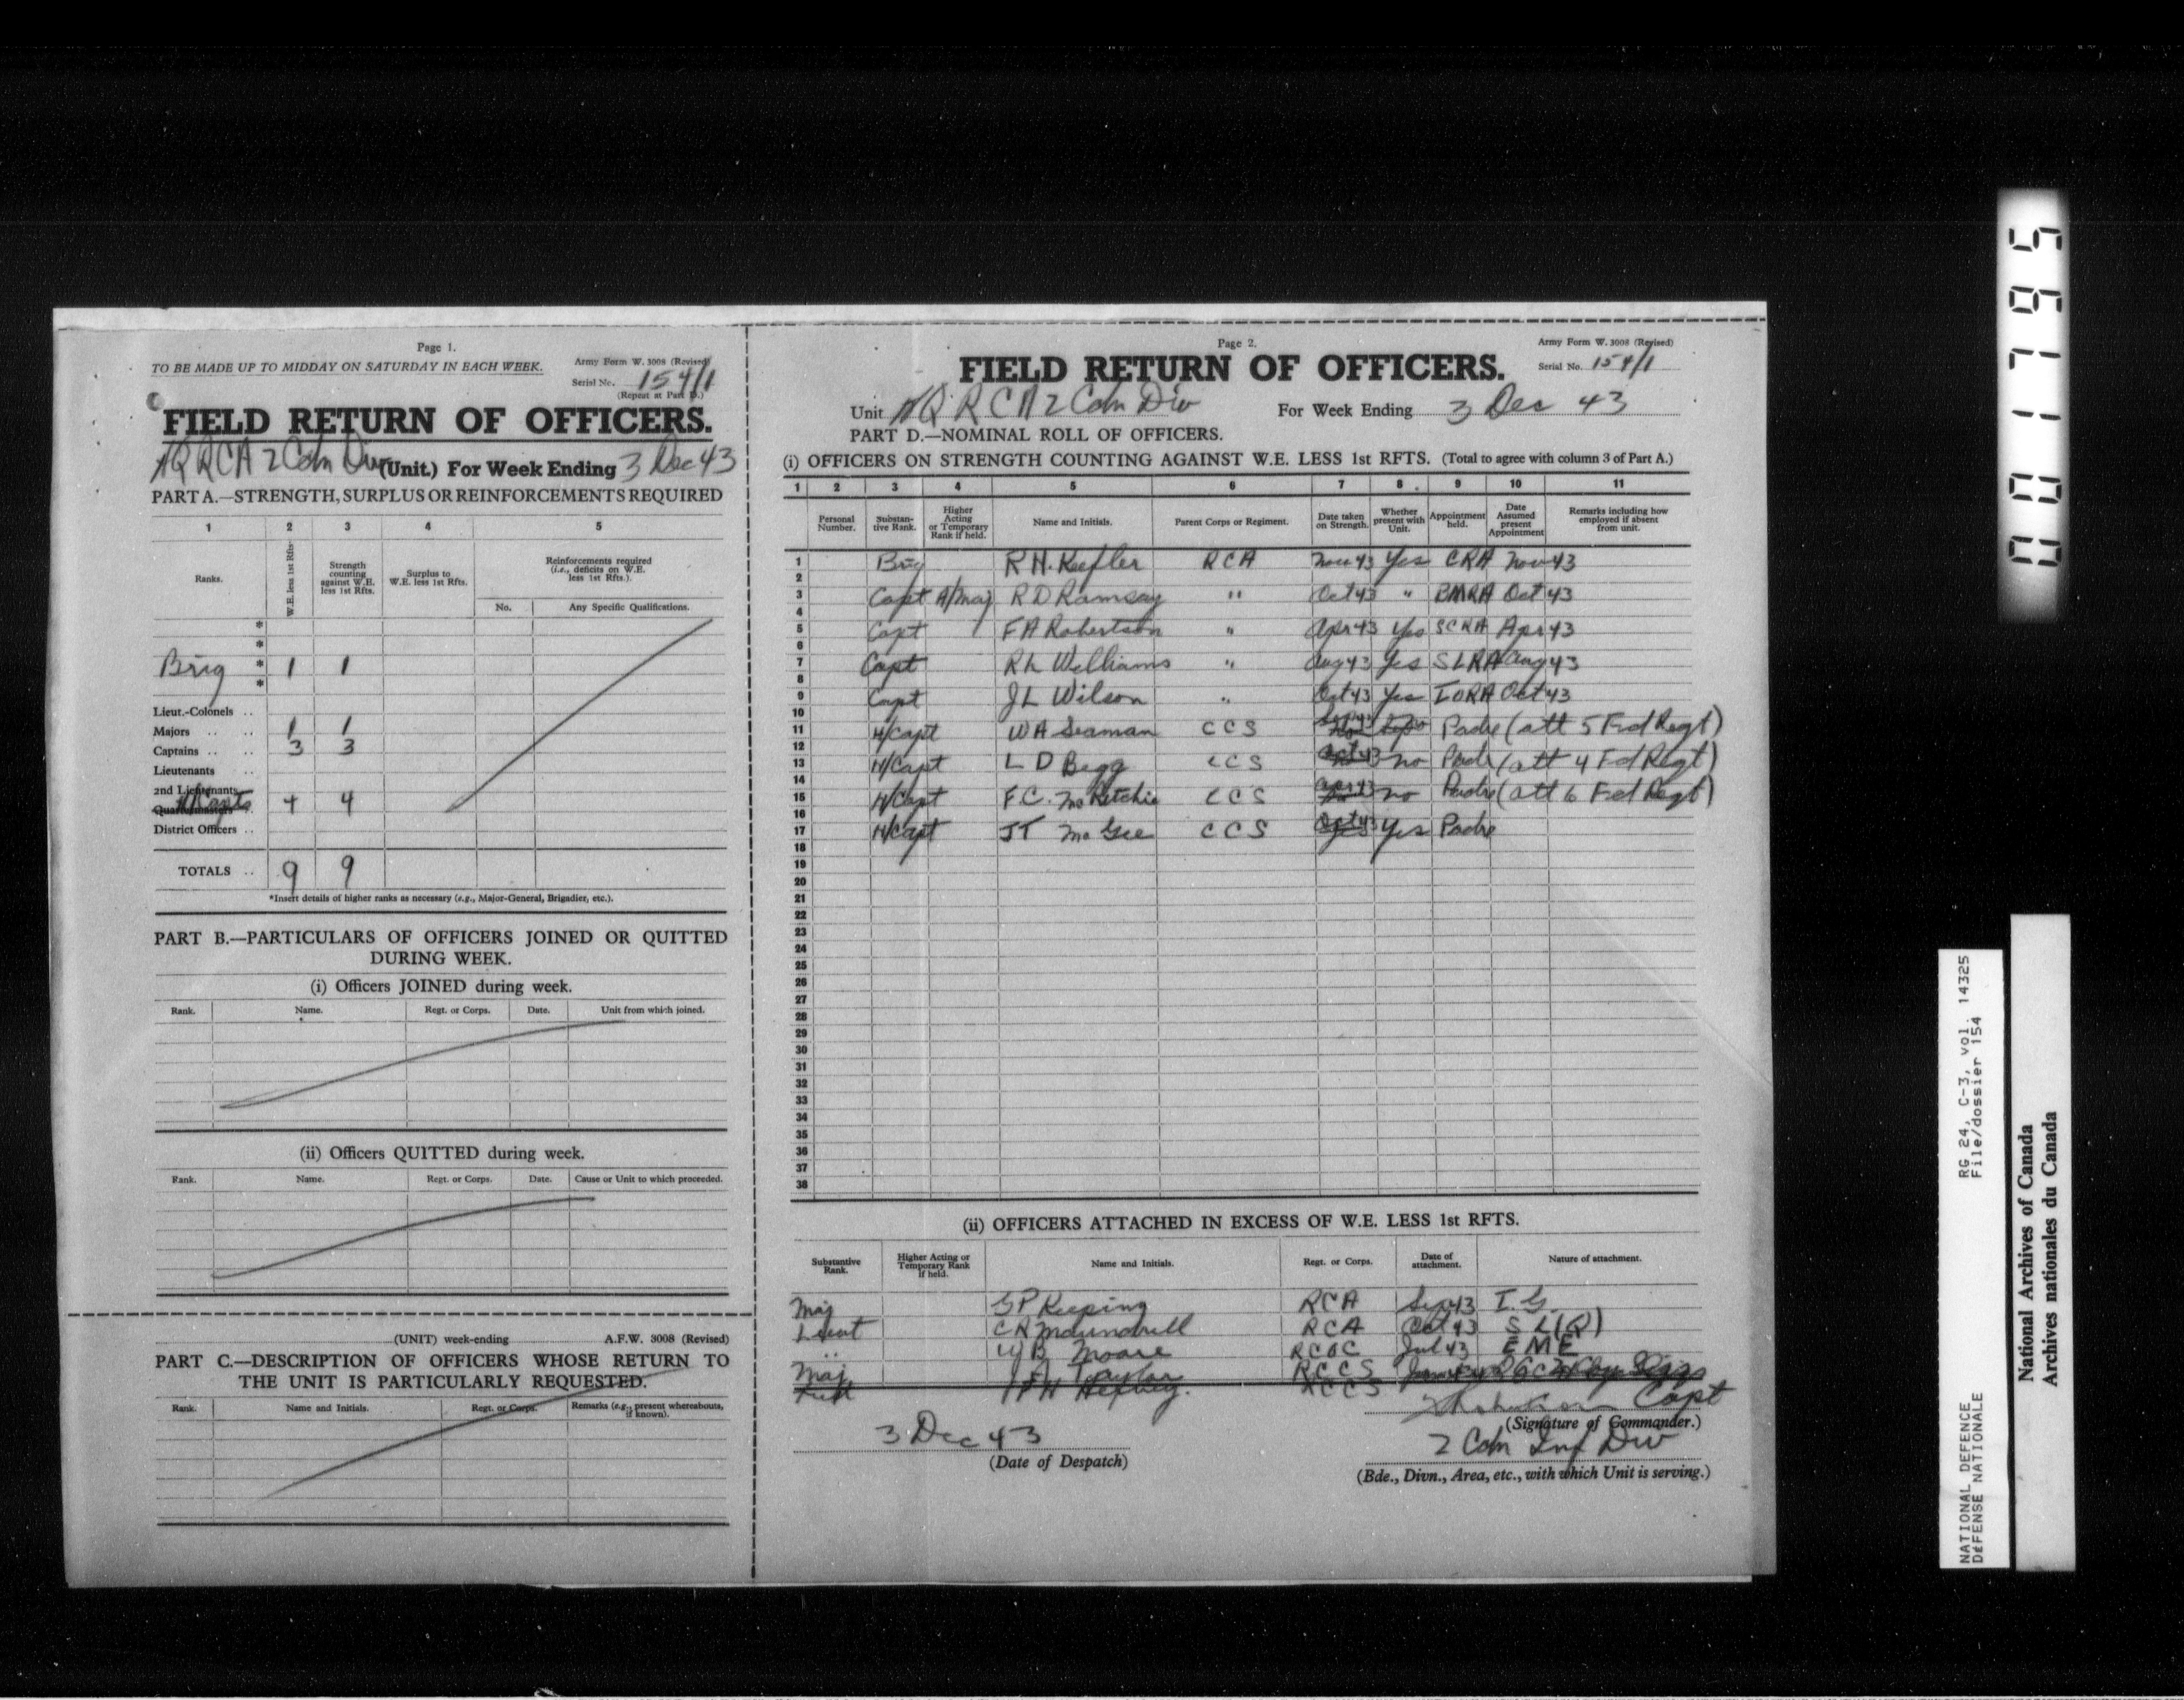 Page 1.
TO BE MADE UP TO MIDDAY ON SATURDAY IN EACH WEEK.
Army Form W. 3008 (Revised)
Serial No. 154/1
(Repeat at Part D.)
FIELD RETURN OF OFFICERS.
HQ RCA 2 Cdn Div (Unit.) For Week Ending 3 Dec 43
PART A.—STRENGTH, SURPLUS OR REINFORCEMENTS REQUIRED
1 2 3 4 5
Ranks. W.E. less 1st Rfts. Strength counting against W.E. less 1st Rfts. Surplus to W.E. less 1st Rfts. Reinforcements required (i.e., deficits on W.E. less 1st Rfts.).
No. Any Specific Qualifications.
*
*
Brig * 1 1
*
Lieut.-Colonels ..
Majors .. .. 1 1
Captains .. .. 3 3
Lieutenants ..
2nd Lieutenants
Quartermasters H/Capts 4 4
District Officers ..
TOTALS .. 9 9
*Insert details of higher ranks as necessary (e.g., Major-General, Brigadier, etc.).
PART B.—PARTICULARS OF OFFICERS JOINED OR QUITTED
DURING WEEK.
(i) Officers JOINED during week.
Rank. Name. Regt. or Corps. Date. Unit from which joined.
(ii) Officers QUITTED during week.
Rank. Name. Regt. or Corps. Date. Cause or Unit to which proceeded.
(UNIT) week-ending A.F.W. 3008 (Revised)
PART C.—DESCRIPTION OF OFFICERS WHOSE RETURN TO
THE UNIT IS PARTICULARLY REQUESTED.
Rank. Name and Initials. Regt. or Corps. Remarks (e.g., present whereabouts, if known).
Page 2.
Army Form W. 3008 (Revised)
FIELD RETURN OF OFFICERS.
Serial No. 154/1
Unit HQ RCA 2 Cdn Div For Week Ending 3 Dec 43
PART D.—NOMINAL ROLL OF OFFICERS.
(i) OFFICERS ON STRENGTH COUNTING AGAINST W.E. LESS 1st RFTS. (Total to agree with column 3 of Part A.)
1 2 3 4 5 6 7 8 9 10 11
Personal Number. Substantive Rank. Higher Acting or Temporary Rank if held. Name and Initials. Parent Corps or Regiment. Date taken on Strength. Whether present with Unit. Appointment held. Date Assumed present Appointment Remarks including how employed if absent from unit.
1 Brig R H. Keefler RCA Nov 43 Yes CRA Nov 43
2
3 Capt A/Maj R D Ramsay " Oct 43 " BMRA Oct 43
4
5 Capt F A Robertson " Apr 43 Yes SCRA Apr 43
6
7 Capt R L Williams " Aug 43 Yes SLRA Aug 43
8
9 Capt J L Wilson " Oct 43 Yes IORA Oct 43
10
11 H/Capt W A Seaman CCS Padre (att 5 Fd Regt)
12
13 H/Capt L D Begg CCS Oct 43 no Padre (att 4 Fd Regt)
14
15 H/Capt F.C. McRitchie CCS Apr 43 no Padre (att 6 Fd Regt)
16
17 H/Capt JT McGee CCS Oct 43 Yes Padre
18
19
20
21
22
23
24
25
26
27
28
29
30
31
32
33
34
35
36
37
38
(ii) OFFICERS ATTACHED IN EXCESS OF W.E. LESS 1st RFTS.
Substantive Rank. Higher Acting or Temporary Rank if held. Name and Initials. Regt. or Corps. Date of attachment. Nature of attachment.
Maj G P Keeping RCA Sep 43 I.G.
Lieut RCA Oct 43 S L(R)
" W B Moore RCOC Jul 43 EME
Maj Taylor RCCS
RCCS
Capt
3 Dec 43
(Date of Despatch)
(Signature of Commander.)
2 Cdn Inf Div
(Bde., Divn., Area, etc., with which Unit is serving.)
001795
RG 24, C-3, vol. 14325
File/dossier 154
NATIONAL DEFENCE
DÉFENSE NATIONALE
National Archives of Canada
Archives nationales du Canada